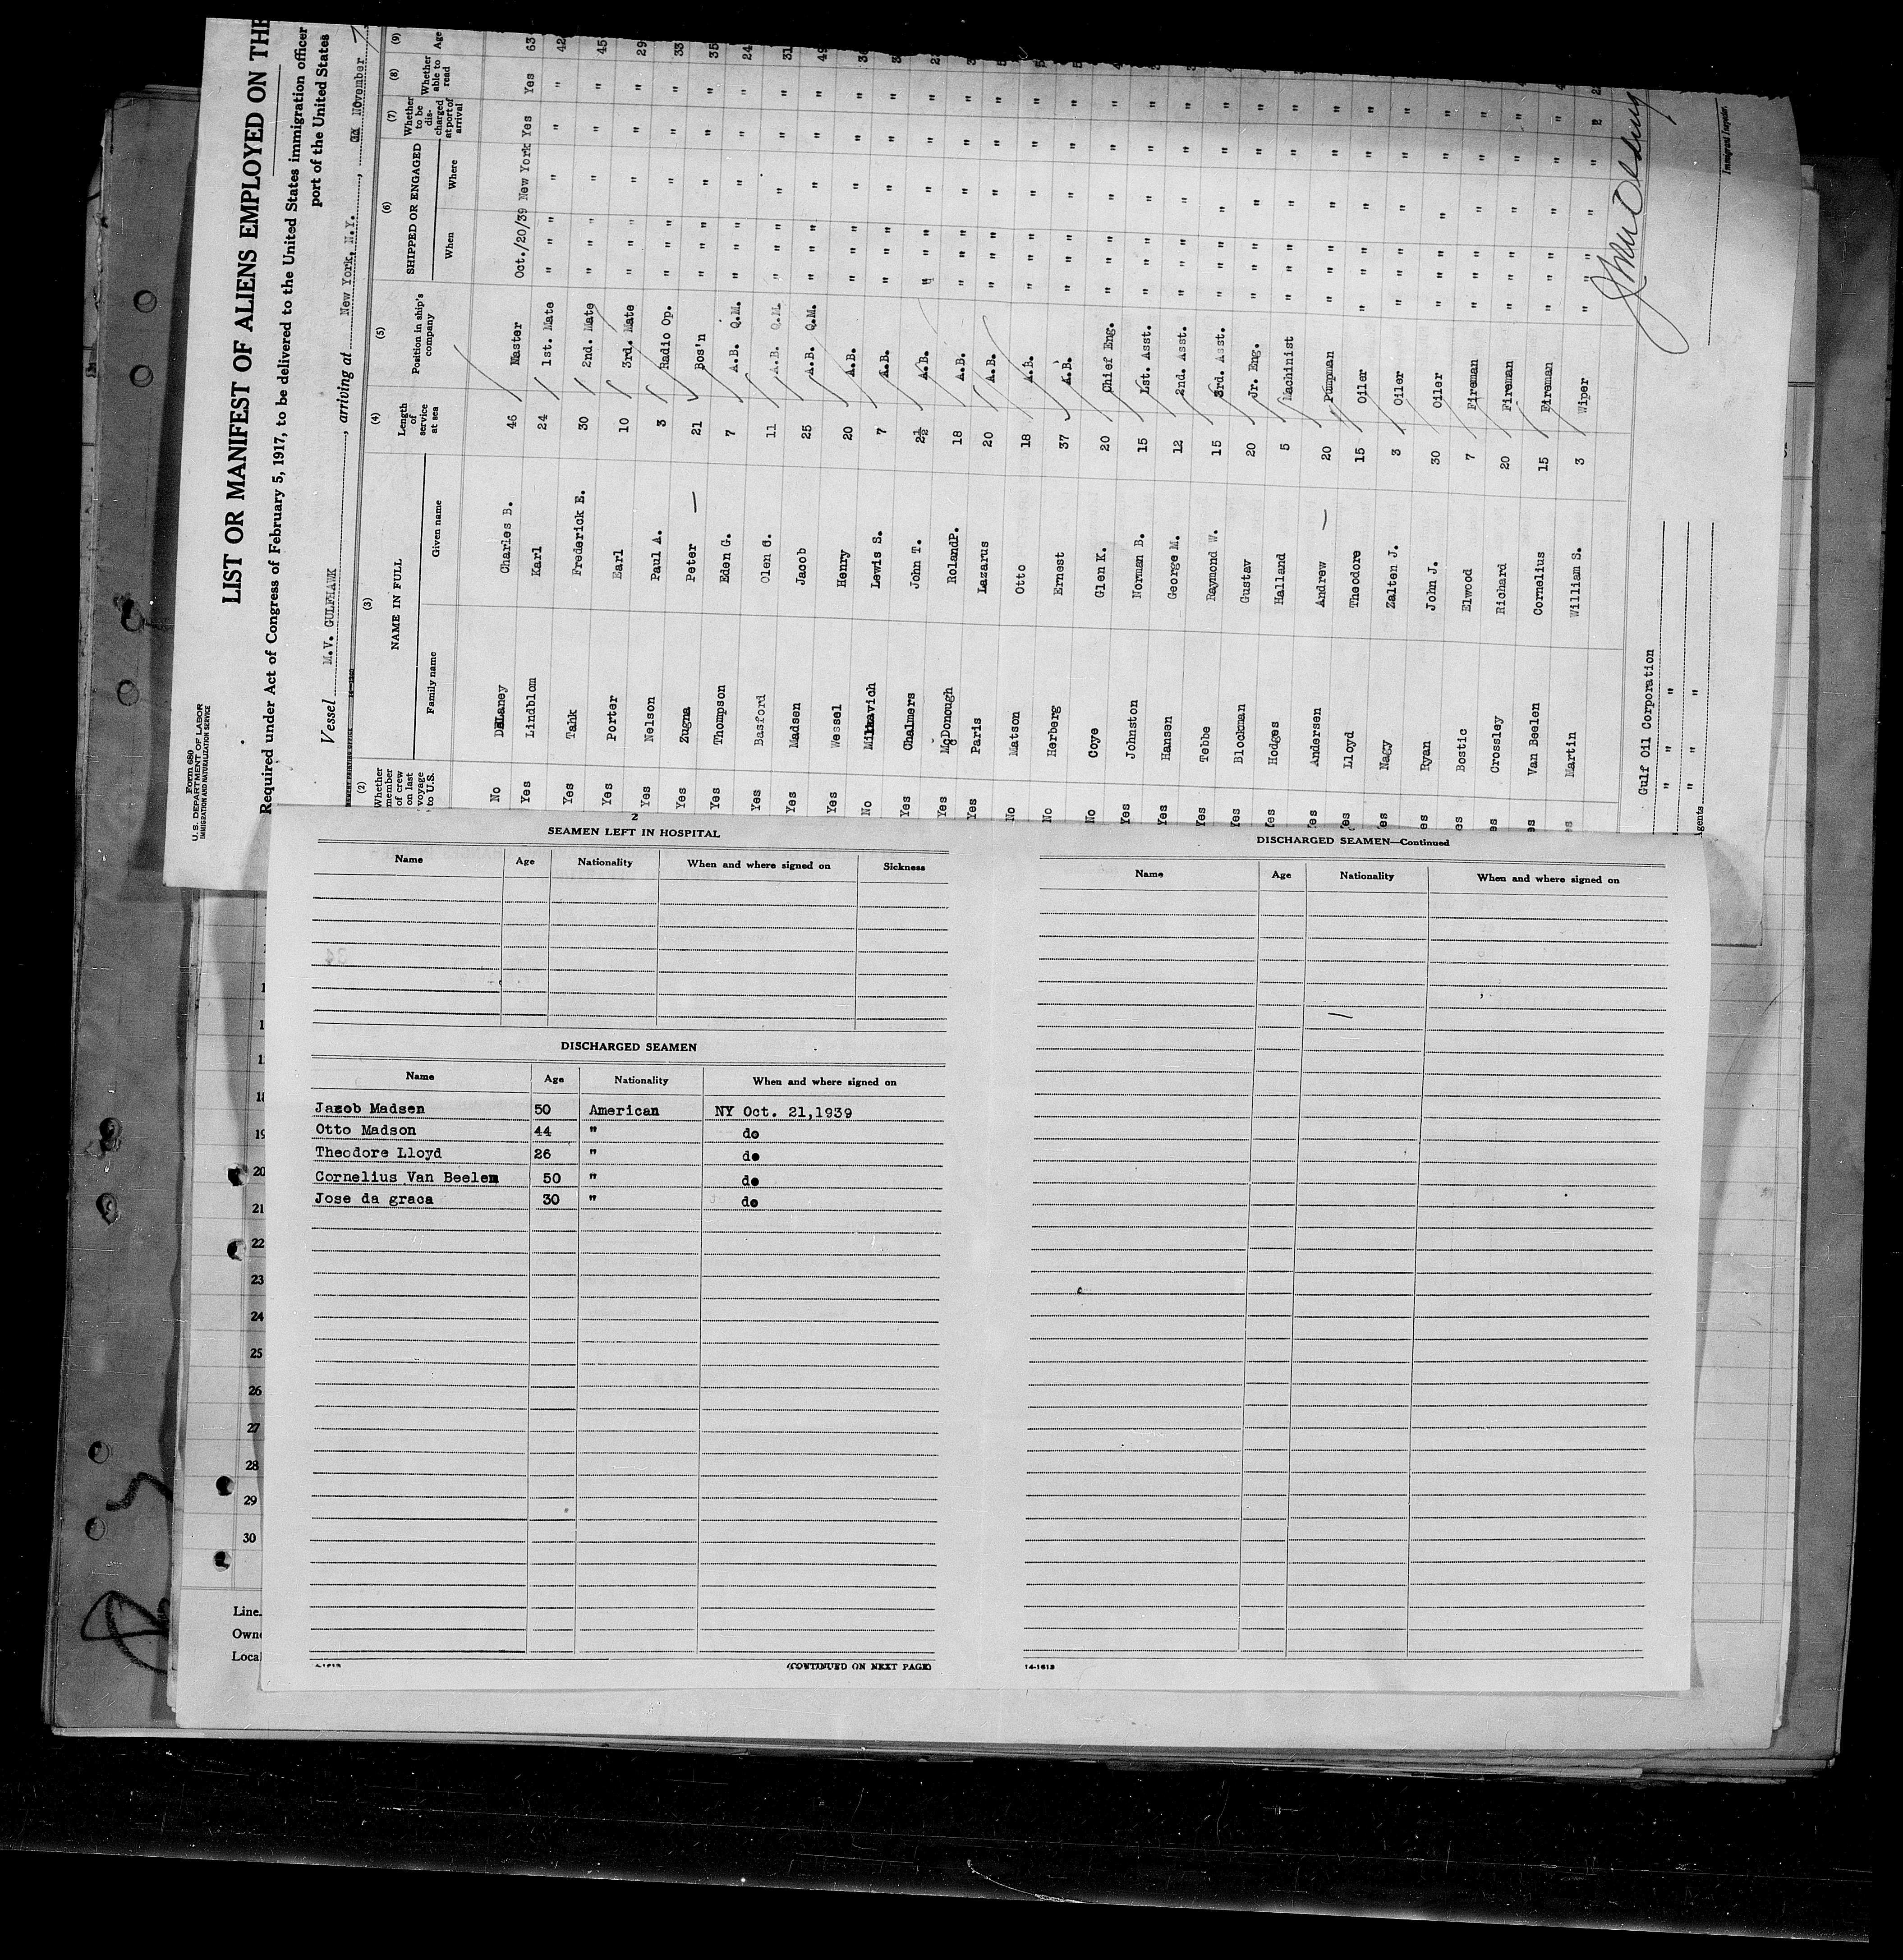 Form 680
U. S. DEPARTMENT OF LABOR
IMMIGRATION AND NATURALIZATION SERVICE
LIST OR MANIFEST OF ALIENS EMPLOYED ON THE
Required under Act of Congress of February 5, 1917, to be delivered to the United States immigration officer
port of the United States
Vessel M.V. GULFHAWK, arriving at New York, N.Y., November 7
(2) (3) (4) (5) (6) (7) (8) (9)
Whether member of crew on last voyage to U.S. NAME IN FULL Length of service at sea Position in ship's company SHIPPED OR ENGAGED Whether to be discharged at port of arrival Whether able to read Age
Family name Given name When Where
No DeLaney Charles B. 46 Master Oct./20/39 New York Yes Yes 63
Yes Lindblom Karl 24 1st. Mate " " " " " " 42
Yes Tahk Frederick E. 30 2nd. Mate " " " " " " 45
Yes Porter Earl 10 3rd. Mate " " " " " " 29
Yes Nelson Paul A. 3 Radio Op. " " " " " " 33
Yes Zugna Peter — 21 Bos'n " " " " " " 35
Yes Thompson Eden G. 7 A.B. Q.M. " " " " " " 24
Yes Basford Olen G. 11 A.B. Q.M. " " " " " " 31
Yes Madsen Jacob 25 A.B. Q.M. " " " " " " 49
Yes Wessel Henry 20 A.B. " " " " " "
No Mikavich Lewis S. 7 A.B. " " " " " "
Yes Chalmers John T. 2½ A.B. " " " " " "
Yes McDonough RolandP. 18 A.B. " " " " " "
Yes Paris Lazarus 20 A.B. " " " " " "
No Matson Otto 18 A.B. " " " " " "
No Herberg Ernest 37 A.B. " " " " " "
No Coye Glen K. 20 Chief Eng. " " " " " "
Yes Johnston Norman B. 15 1st. Asst. " " " " " "
Yes Hansen George M. 12 2nd. Asst. " " " " " "
Yes Tebbe Raymond W. 15 3rd. Asst. " " " " " "
Yes Blockman Gustav 20 Jr. Eng. " " " " " "
Yes Hodges Halland 5 Machinist " " " " " "
Yes Andersen Andrew — 20 Pumpman " " " " " "
Yes Lloyd Theodore 15 Oiler " " " " " "
es Nagy Zalten J. 3 Oiler " " " " " "
es Ryan John J. 30 Oiler " " " " " "
es Bostic Elwood 7 Fireman " " " " " "
es Crossley Richard 20 Fireman " " " " " "
es Van Beelen Cornelius 15 Fireman " " " " " "
es Martin William S. 3 Wiper " " " " "
Gulf Oil Corporation
" "
" "
Agents
Immigrant Inspector.
2
SEAMEN LEFT IN HOSPITAL
Name Age Nationality When and where signed on Sickness
DISCHARGED SEAMEN
Name Age Nationality When and where signed on
Jacob Madsen 50 American NY Oct. 21,1939
Otto Madson 44 " do
Theodore Lloyd 26 " do
Cornelius Van Beelen 50 " do
Jose da graca 30 " do
(CONTINUED ON NEXT PAGE)
DISCHARGED SEAMEN—Continued
Name Age Nationality When and where signed on
14-1613
18
19
20
21
22
23
24
25
26
27
28
29
30
Line
Owne
Local